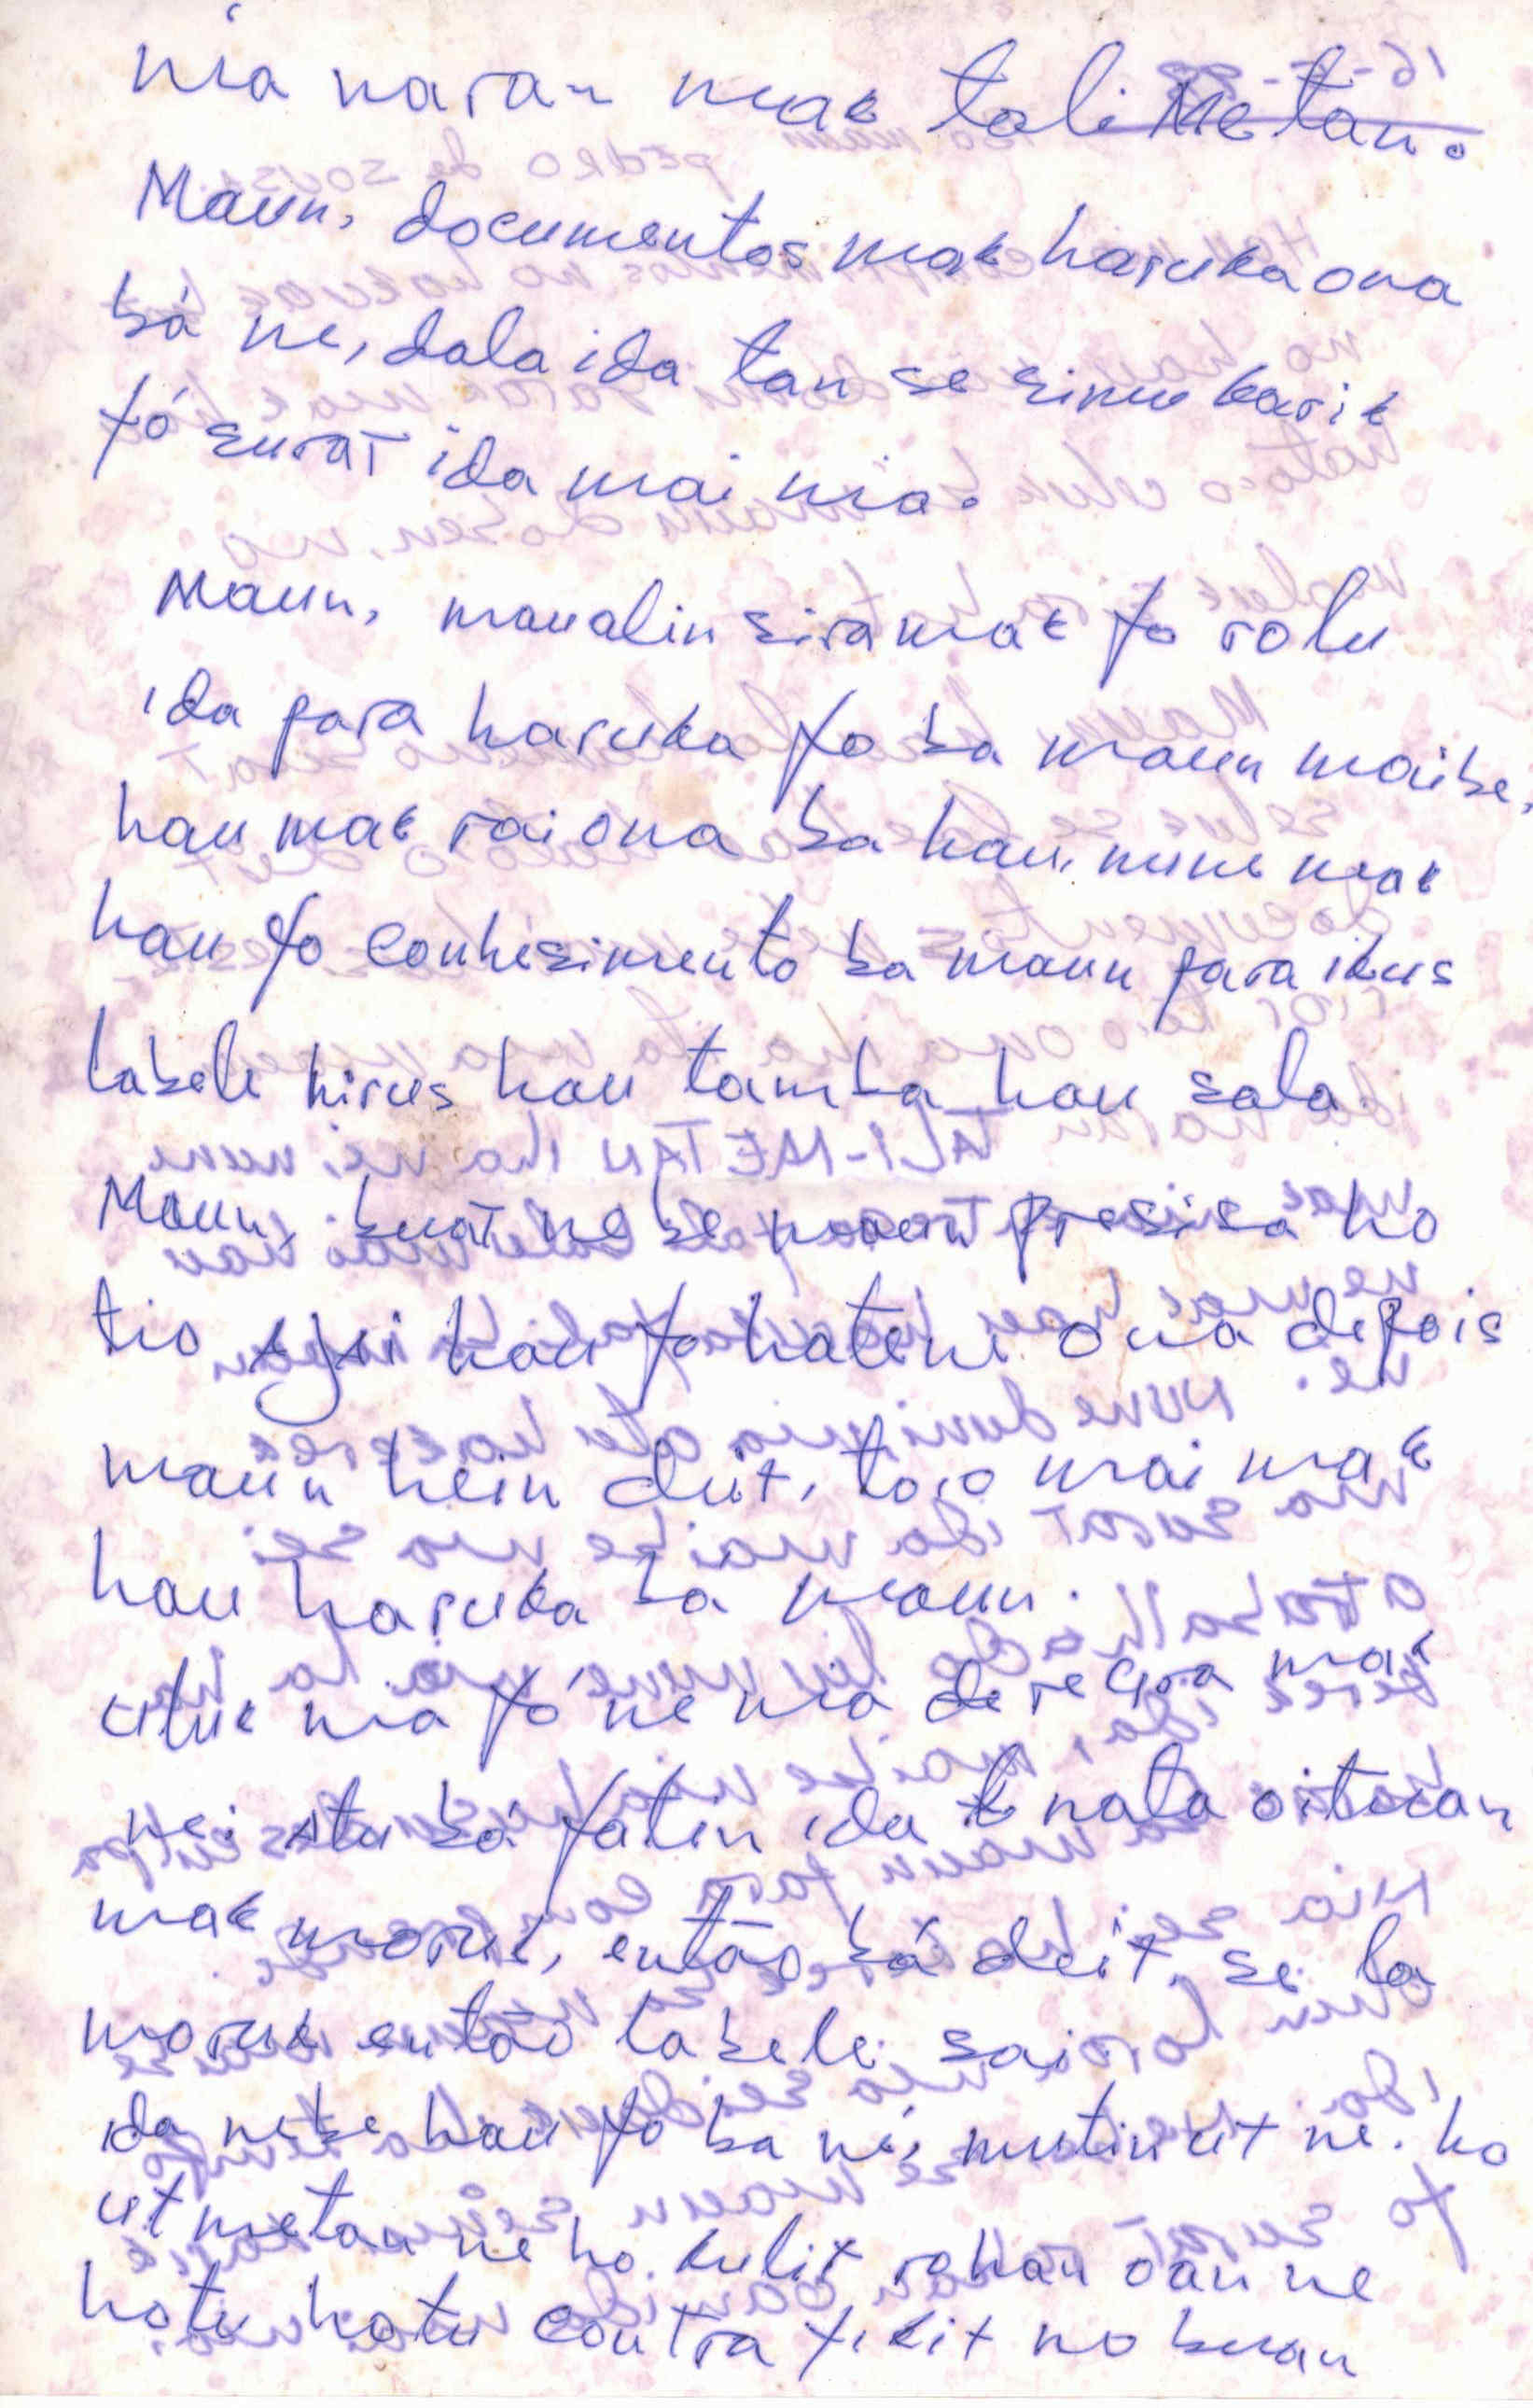 nia naran mak tali Metan.
Maun, documentos mak haruka ona
bá ne, dala ida tan se simu karik
fó surat ida mai nia.
Maun, maualin sira mak fo rolu
ida para haruka fo ba maun maibe,
hau mak rai ona ba hau, nune mak
hau fo conhesimento ba maun para ikus
labele hirus hau tamba hau sala.
Maun, buat ne be maun presisa ho
tio hau fo hatene ona depois
maun hein deit, to'o mai mak
hau haruka ba maun.
uluk nia fó ne nia deregra mak
nei atu bá fatin ida nata oituan
mak moruk, então bá deit, se la
moruk então labele sai
ida nebe hau fo ba né, mutin ut ne. ho
ut metan ne ho. kulit rohan oan ne
hotu hotu contra tikit no buan